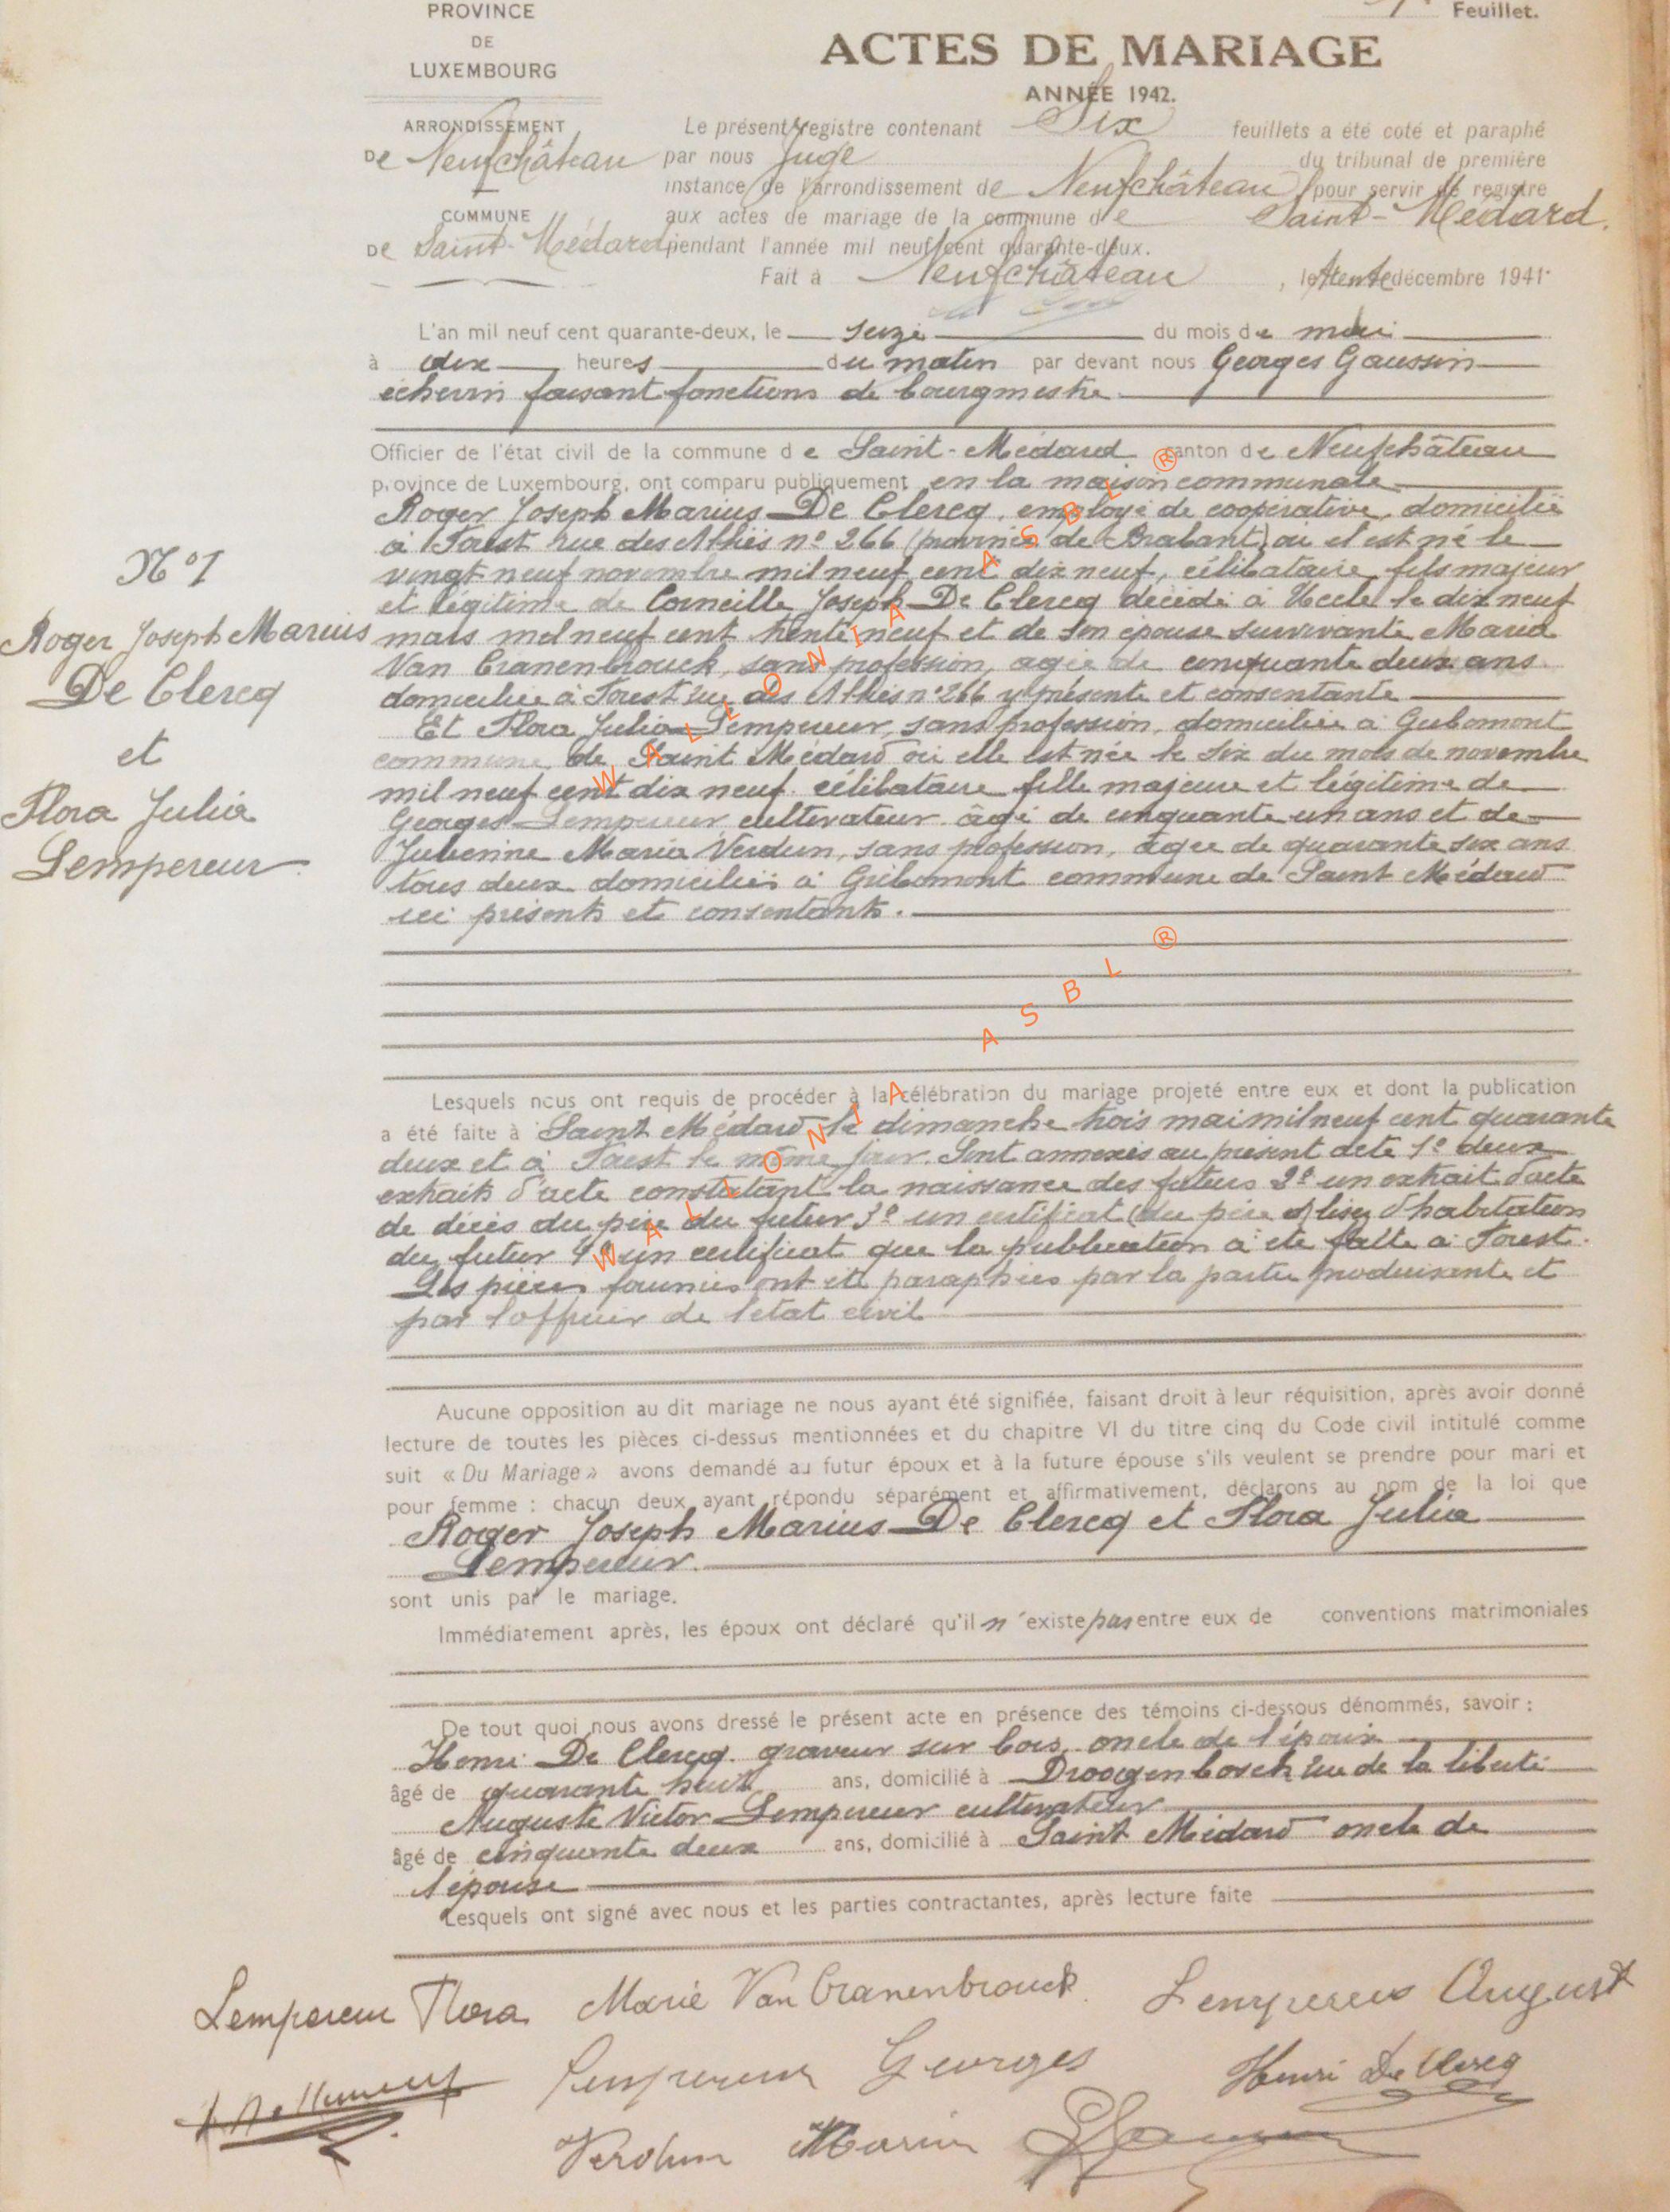 PROVINCE
DE
LUXEMBOURG
Feuillet.
ACTES DE MARIAGE
ANNÉE 1942.
ARRONDISSEMENT
De Neufchâteau
COMMUNE
DE Saint-Médard
Le présent registre contenant Six feuillets a été coté et paraphé
par nous Juge du tribunal de première
instance de l'arrondissement de Neufchâteau pour servir de registre
aux actes de mariage de la commune de Saint-Médard.
pendant l'année mil neuf cent quarante-deux.
Fait à Neufchâteau, le trente décembre 1941.
L'an mil neuf cent quarante-deux, le seize du mois de mai
à dix heures du matin par devant nous Georges Gaussin
échevin faisant fonctions de bourgmestre.
Officier de l'état civil de la commune de Saint-Médard canton de Neufchâteau
province de Luxembourg, ont comparu publiquement en la maison communale
N° 1
Roger Joseph Marius
De Clercq
et
Flora Julia
Lempereur
Roger Joseph Marius De Clercq, employé de coopérative, domicilié
à Forest rue des Alliés n° 266 (province de Brabant) où il est né le
vingt neuf novembre mil neuf cent dix neuf, célibataire, fils majeur
et légitime de Corneille Joseph De Clercq décédé à Uccle le dix neuf
mars mil neuf cent trente neuf et de son épouse survivante Maria
Van Cranenbrouck, sans profession, agée de cinquante deux ans
domiciliée à Forest rue des Alliés n° 266 y présente et consentante
Et Flora Julia Lempereur, sans profession, domiciliée à Gribomont
commune de Saint Médard où elle est née le six du mois de novembre
mil neuf cent dix neuf célibataire fille majeure et légitime de
Georges Lempereur cultivateur âgé de cinquante un ans et de
Julienne Maria Verdun, sans profession, agée de quarante six ans
tous deux domiciliés à Gribomont commune de Saint Médard
ici présents et consentants.
Lesquels nous ont requis de procéder à la célébration du mariage projeté entre eux et dont la publication
a été faite à Saint Médard le dimanche trois mai mil neuf cent quarante
deux et à Forest le même jour. Sont annexés au présent acte 1° deux
extraits d'acte constatant la naissance des futurs 2° un extrait d'acte
de décès du père du futur 3° un certificat (du père d'habitation
du futur 4° un certificat que la publication a été faite à Forest.
Les pièces fournies ont été paraphées par la partie produisante et
par l'officier de l'état civil
Aucune opposition au dit mariage ne nous ayant été signifiée, faisant droit à leur réquisition, après avoir donné
lecture de toutes les pièces ci-dessus mentionnées et du chapitre VI du titre cinq du Code civil intitulé comme
suit « Du Mariage » avons demandé au futur époux et à la future épouse s'ils veulent se prendre pour mari et
pour femme : chacun deux ayant répondu séparément et affirmativement, déclarons au nom de la loi que
Roger Joseph Marius De Clercq et Flora Julia
Lempereur.
sont unis par le mariage.
Immédiatement après, les époux ont déclaré qu'il n'existe pas entre eux de conventions matrimoniales
De tout quoi nous avons dressé le présent acte en présence des témoins ci-dessous dénommés, savoir :
Henri De Clercq graveur sur bois, oncle de l'époux
âgé de quarante huit ans, domicilié à Droogenbosch rue de la liberté
Auguste Victor Lempereur cultivateur
âgé de cinquante deux ans, domicilié à Saint Médard oncle de
l'épouse
Lesquels ont signé avec nous et les parties contractantes, après lecture faite
Lempereur Flora Marie Van Cranenbrouck Lempereur August
Lempereur Georges Henri De Clercq
Verdun Maria
WALLONIA ASBL ®
WALLONIA ASBL ®